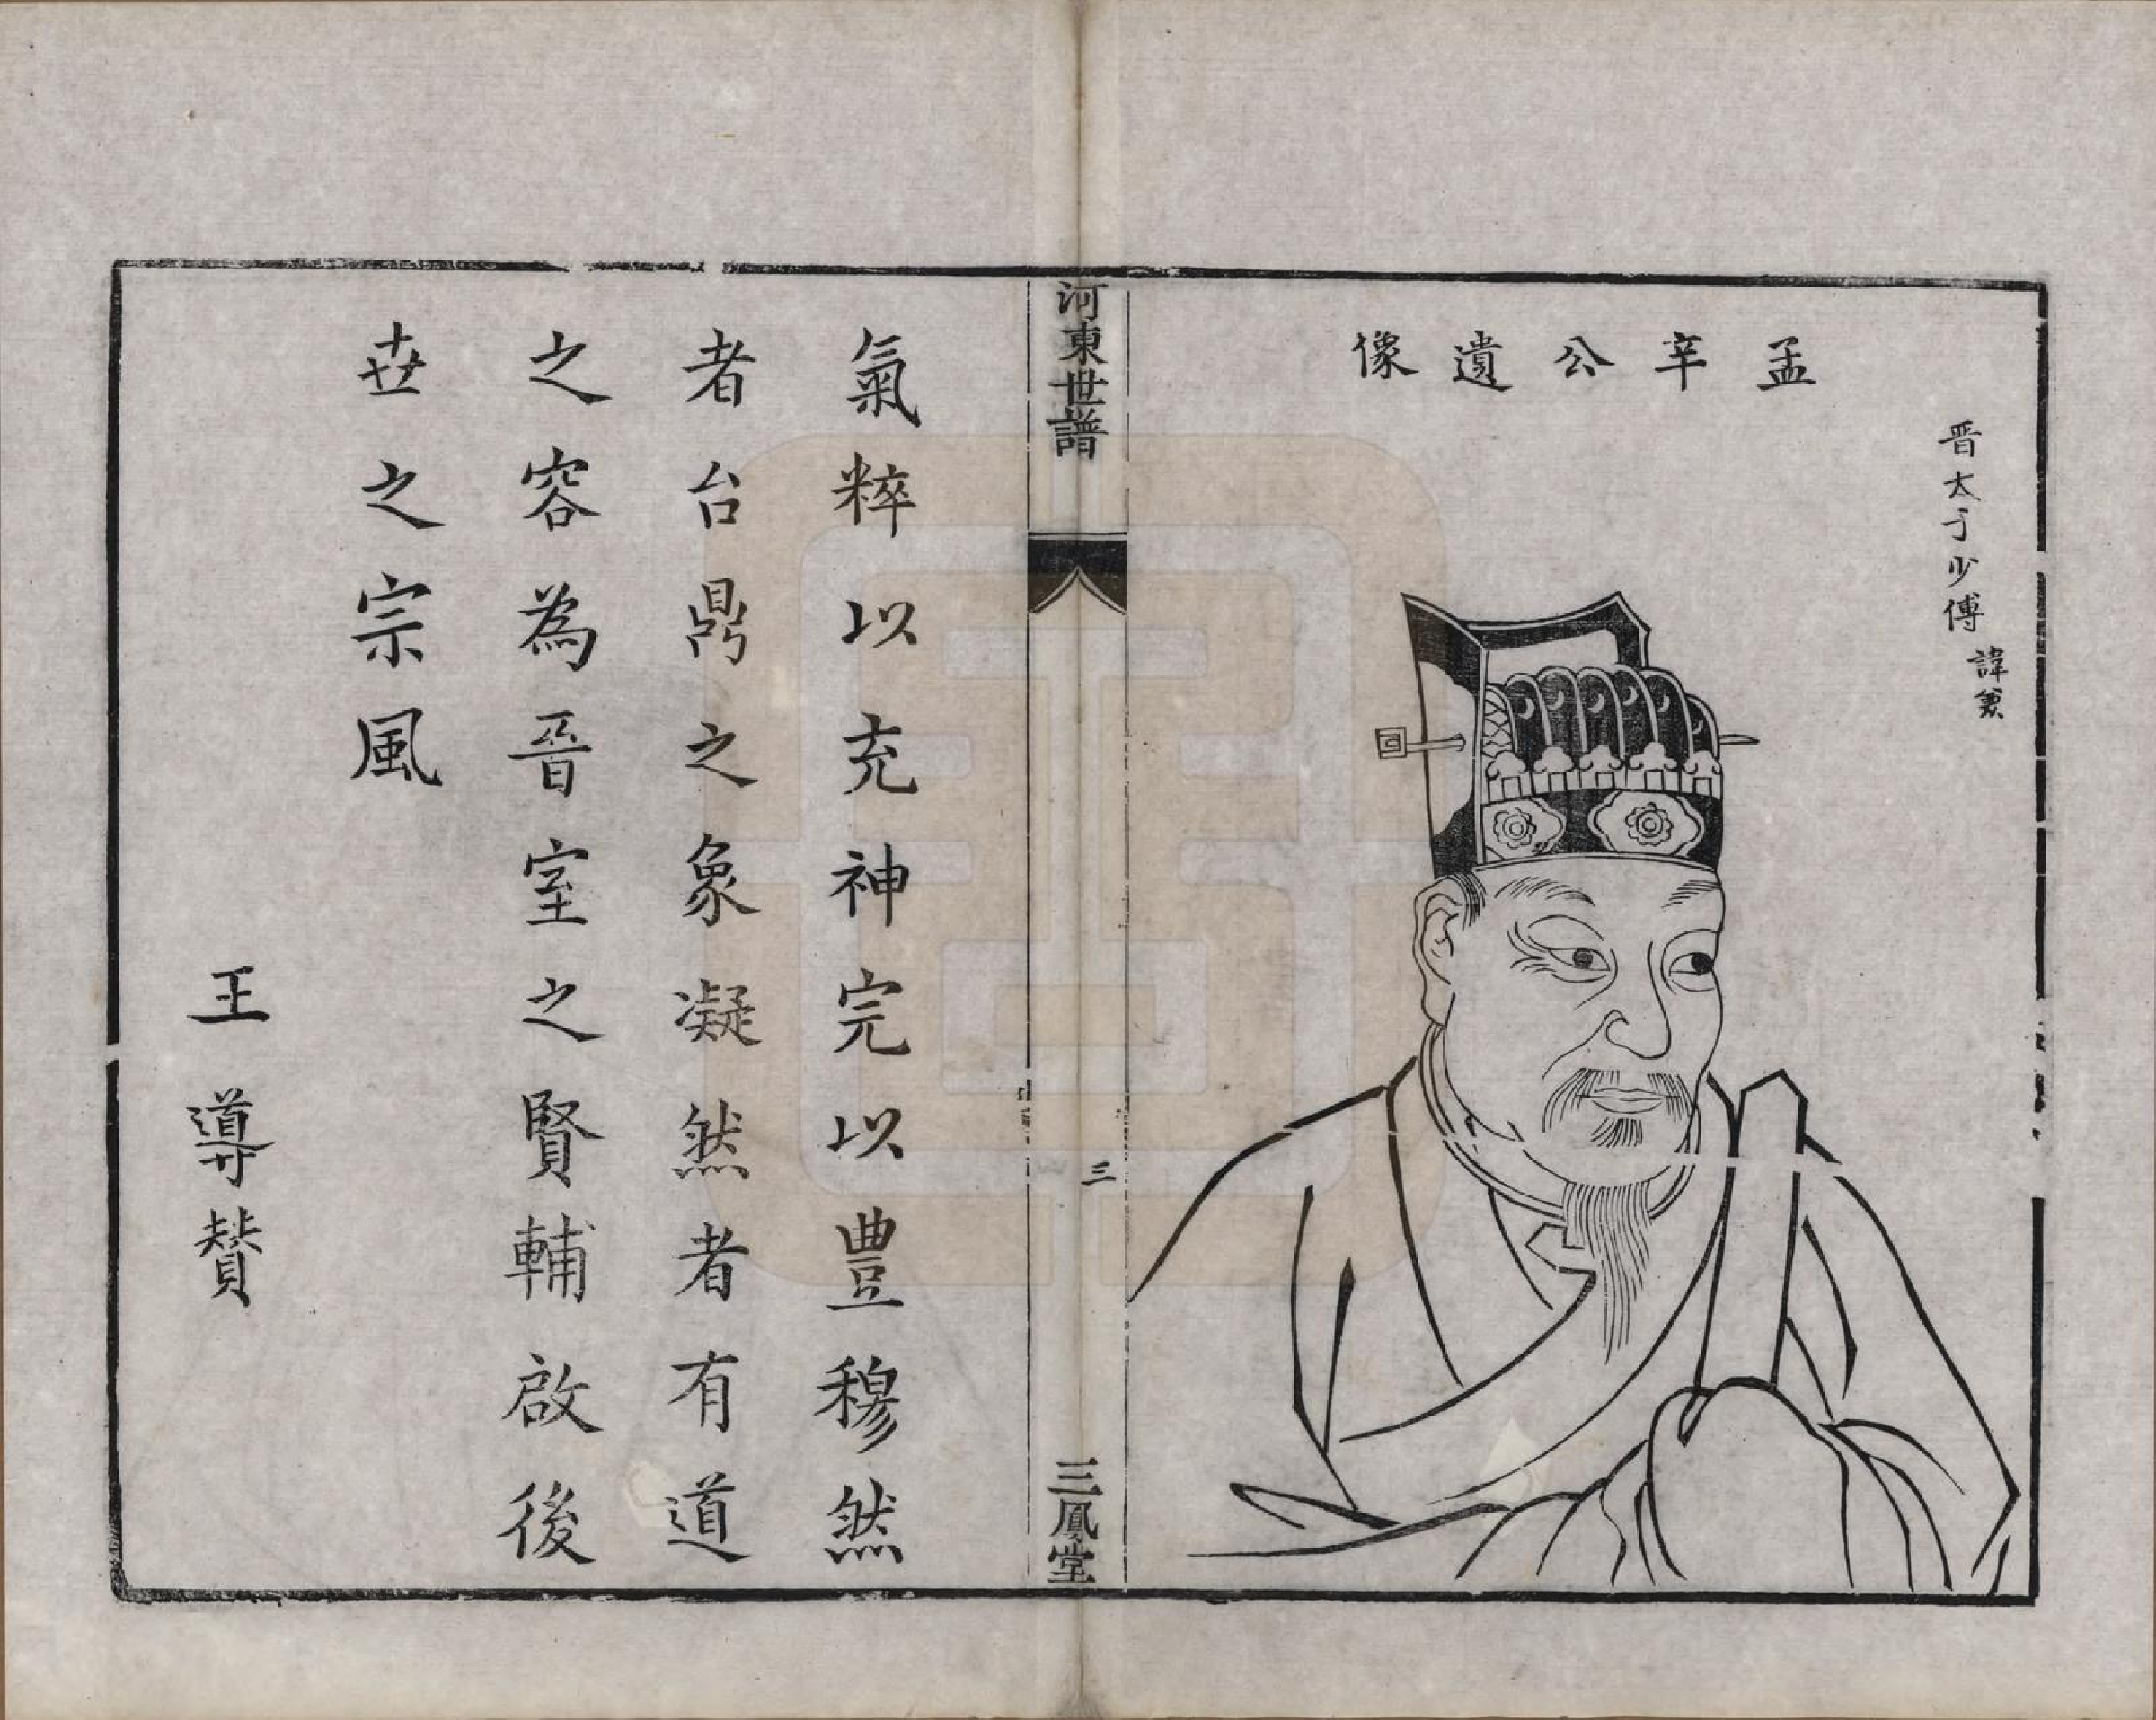 孟辛公遺像
晋太子少傅
諱
河東世譜
三
三鳳堂
氣粹以充神完以豊穆然
者台鼎之象凝然者有道
之容為晋室之賢輔啟後
世之宗風
王導賛